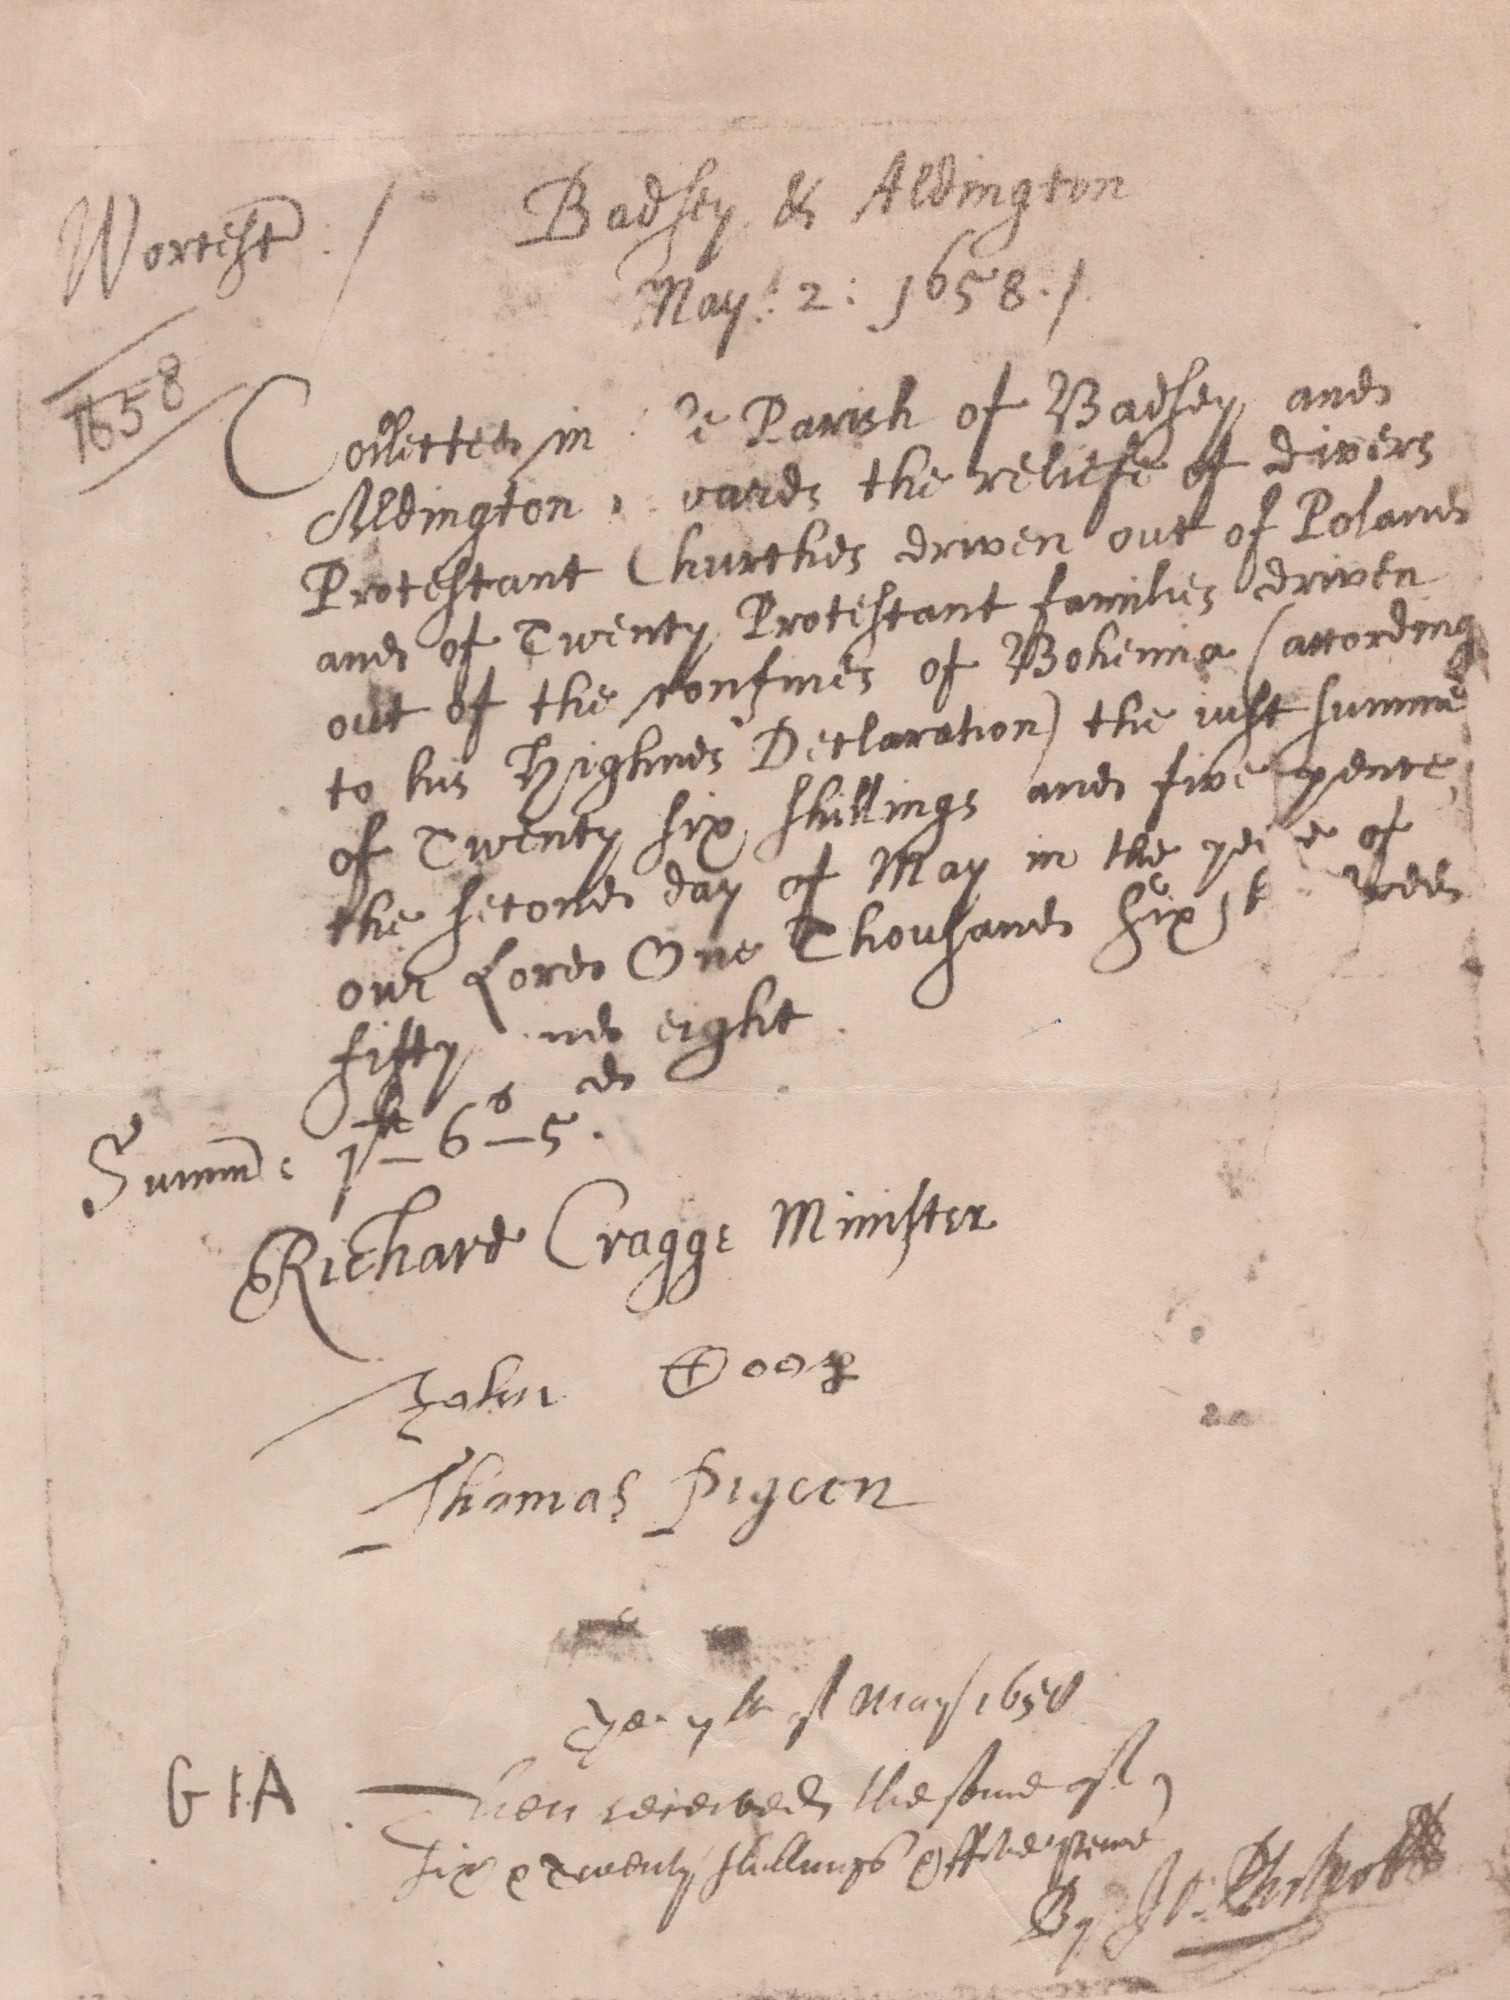 Worcest
Badsey & Aldington
May: 2: 1658./
1658
Collected in e Parish of Badsey and
Aldington wards the reliefe of divers
Protestant Churches driven out of Poland
and of Twenty Protestant families driven
out of the confines of Bohemia (according
to his Highnes Declaration) the iust summe
of Twenty six shillings and five pence,
the second day of May in the ye e of
our Lord One Thousand six h dred
fifty nd eight.
Summ: 1li - 6s - 5d.
Richard Cragge Minister
John
Thomas Pigeon
7th of May 1658
G I A
Then received the some of
six & twenty shillings & ffive pence
By Jo: